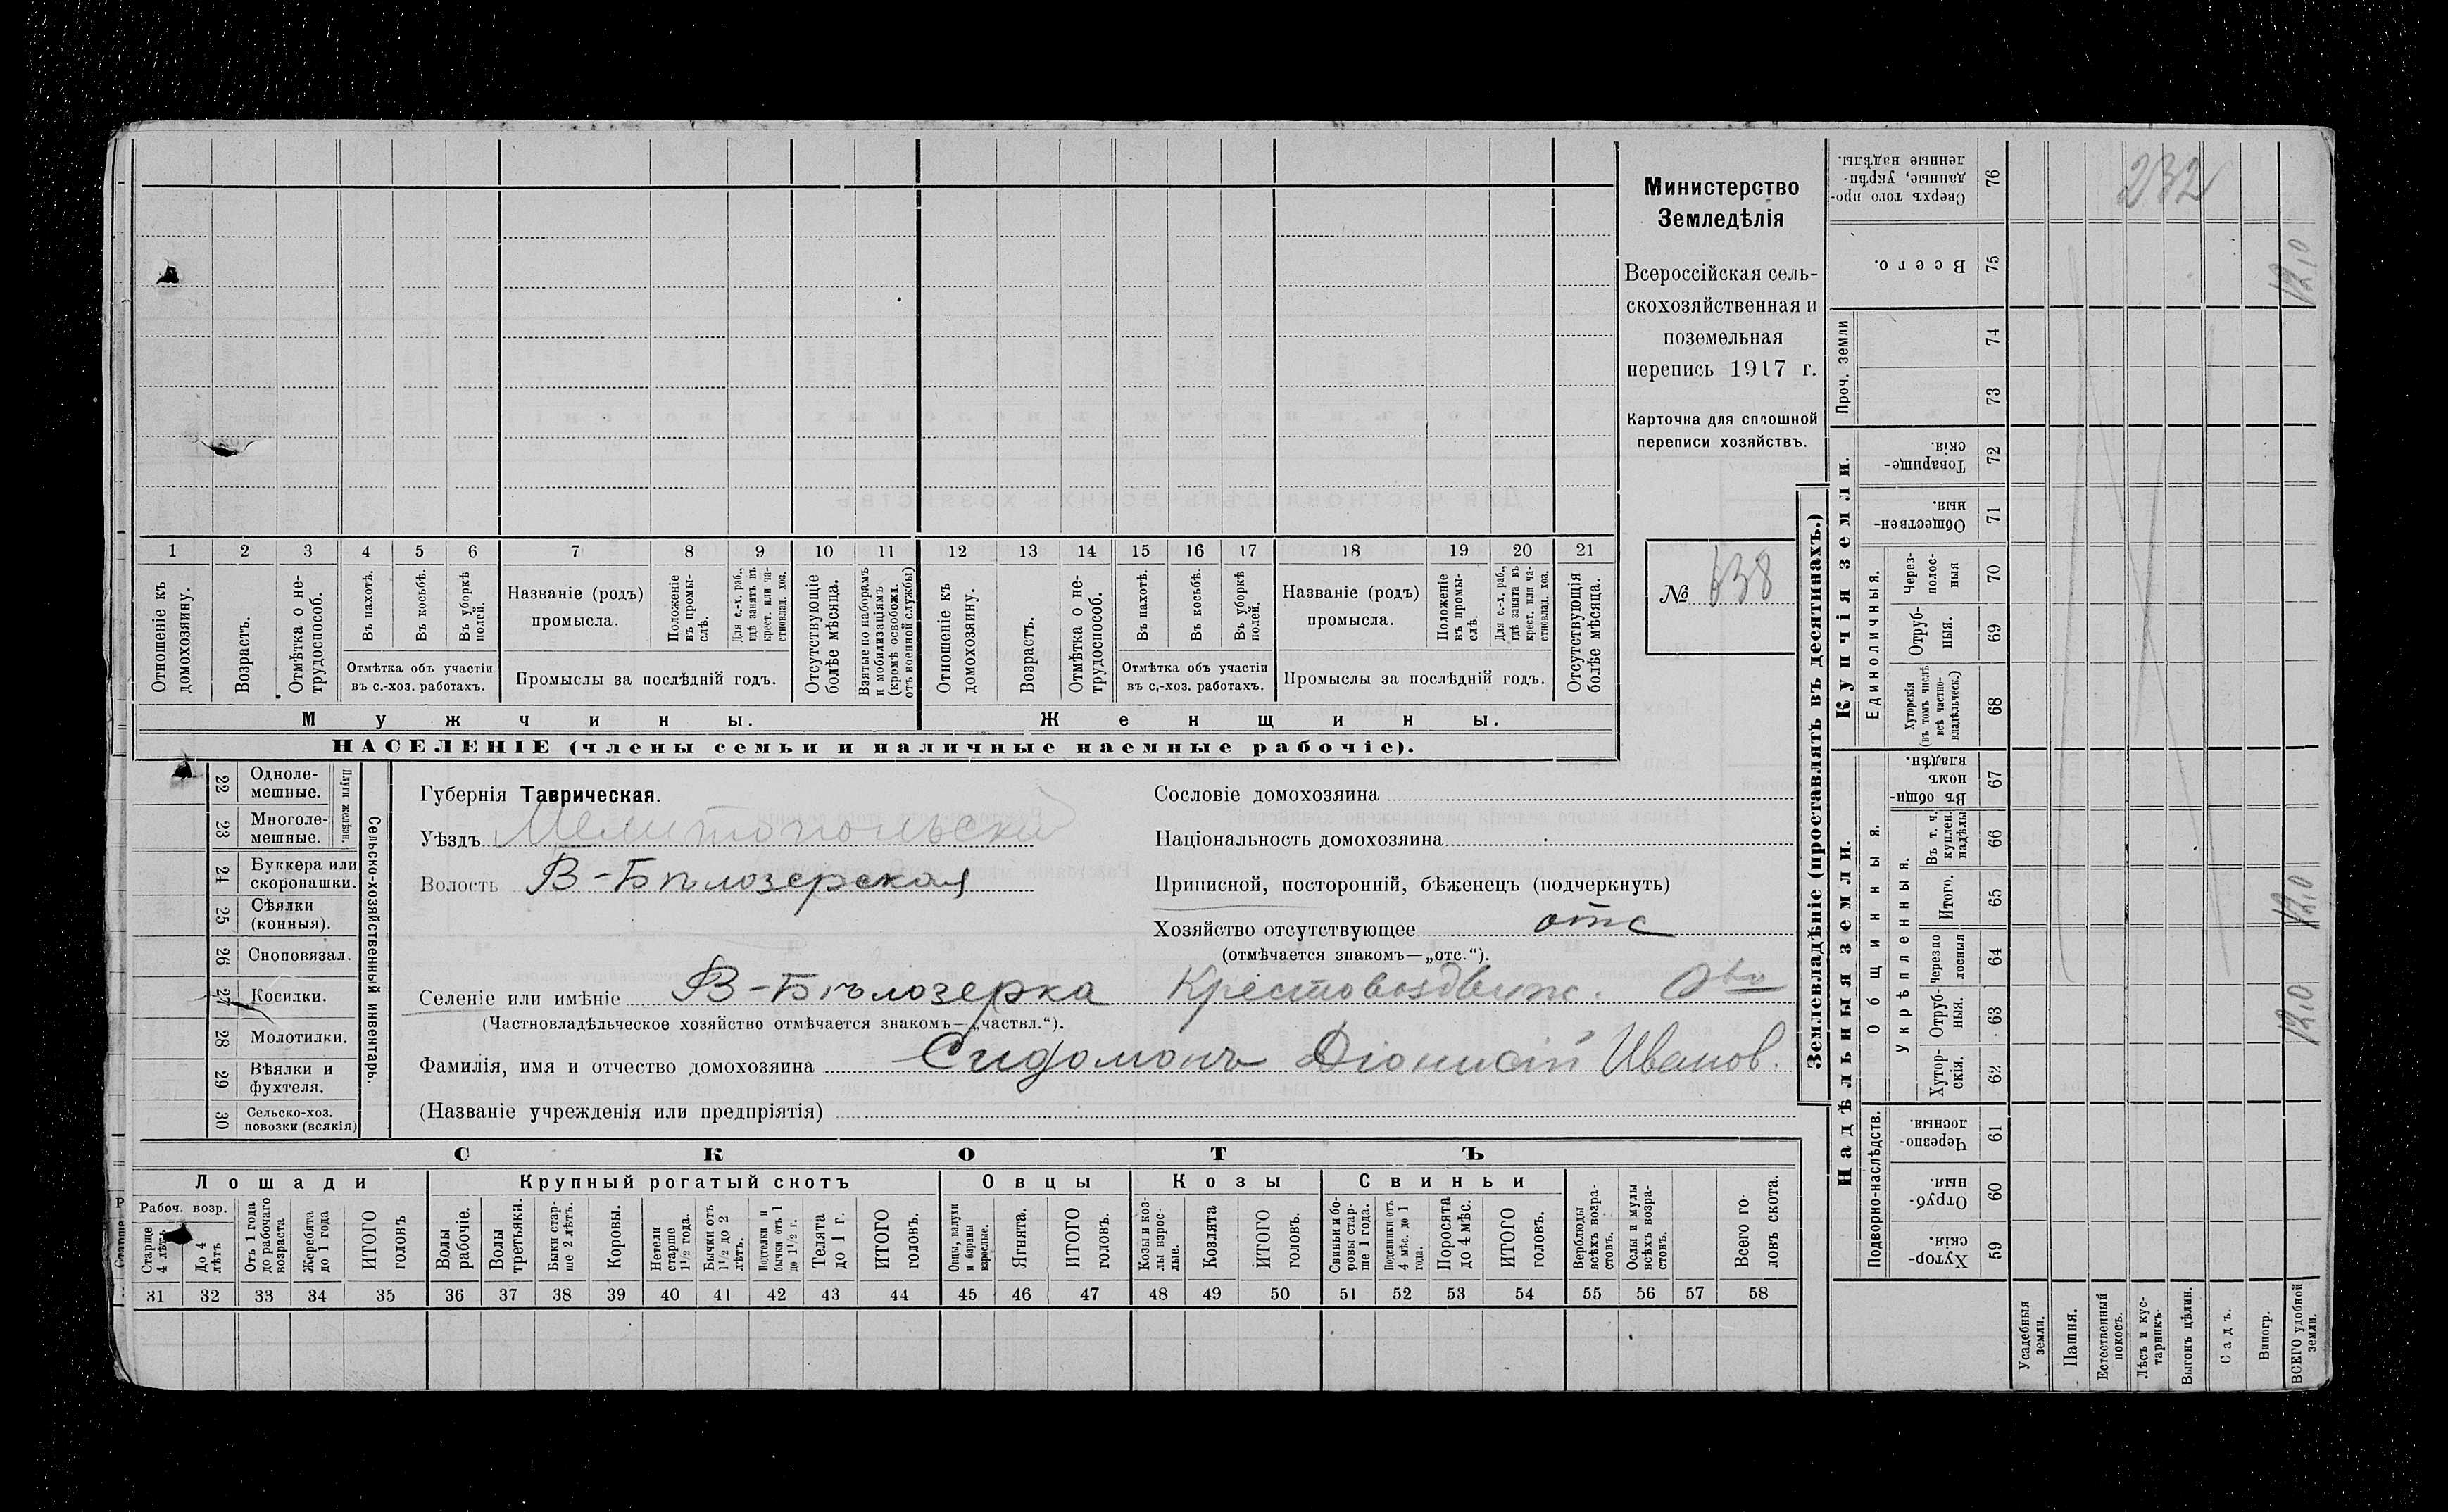 Министерство
Земледѣлія
Всероссійская сель-
скохозяйственная и
поземельная
перепись 1917 г.
Карточка для сплошной
переписи хозяйствъ.
№ 638
1 2 3 4 5 6 7 8 9 10 11 12 13 14 15 16 17 18 19 20 21
Отношеніе къ домохозяину.
Возрастъ.
Отмѣтка о не-
трудоспособ.
Въ пахотѣ.
Въ косьбѣ.
Въ уборкѣ
полей.
Отмѣтка объ участіи
въ с.-хоз. работахъ.
Названіе (родъ)
промысла.
Положеніе
въ промы-
слѣ.
Для с.-х. раб.,
гдѣ занятъ въ
крест. или ча-
стновлад. хоз.
Промыслы за послѣдній годъ.
Отсутствующіе
болѣе мѣсяца.
Взятые по наборамъ
и мобилизаціямъ
(кромѣ освобожд.
отъ военной службы)
Отношеніе къ
домохозяину.
Возрастъ.
Отмѣтка о не-
трудоспособ.
Въ пахотѣ.
Въ косьбѣ.
Въ уборкѣ
полей.
Отмѣтка объ участіи
въ с.-хоз. работахъ.
Названіе (родъ)
промысла.
Положеніе
въ промы-
слѣ.
Для с.-х. раб.,
гдѣ занята въ
крест. или ча-
стновлад. хоз.
Промыслы за послѣдній годъ.
Отсутствующія
болѣе мѣсяца.
Мужчины.
Женщины.
НАСЕЛЕНІЕ (члены семьи и наличные наемные рабочіе).
22 Одноле-
мешные.
23 Многоле-
мешные.
Плуги желѣзн.
24 Буккера или
скоропашки.
25 Сѣялки
(конныя).
26 Сноповязал.
27 Косилки.
28 Молотилки.
29 Вѣялки и
фухтеля.
30 Сельско-хоз.
повозки (всякія)
Сельско-хозяйственный инвентарь.
Губернія Таврическая.
Уѣздъ Мелитопольскій
Волость В-Бѣлозерская
Сословіе домохозяина
Національность домохозяина
Приписной, посторонній, бѣженецъ (подчеркнуть)
Хозяйство отсутствующее отс
(отмѣчается знакомъ—„отс.“).
Селеніе или имѣніе В-Бѣлозерка Крестовоздвиж. О-во
(Частновладѣльческое хозяйство отмѣчается знакомъ—„частвл.“).
Фамилія, имя и отчество домохозяина Сидомонъ Діонисій Иванов.
(Названіе учрежденія или предпріятія)
СКОТЪ
Лошади
Крупный рогатый скотъ
Овцы
Козы
Свиньи
Рабоч. возр.
Старше
4 лѣтъ
До 4
лѣтъ
Отъ 1 года
до рабочаго
возраста
Жеребята
до 1 года
ИТОГО
головъ
Волы
рабочіе.
Волы
третьяки.
Быки стар-
ше 2 лѣтъ.
Коровы.
Нетели
старше
1½ года.
Бычки отъ
1½ до 2
лѣтъ.
Подтелки и
бычки отъ 1
до 1½ г.
Телята
до 1 г.
ИТОГО
головъ.
Овцы, валухи
и бараны
взрослые.
Ягнята.
ИТОГО
головъ.
Козы и коз-
лы взрос-
лые.
Козлята
ИТОГО
головъ.
Свиньи и бо-
ровы стар-
ше 1 года.
Подсвинки отъ
4 мѣс. до 1
года.
Поросята
до 4 мѣс.
ИТОГО
головъ.
Верблюды
всѣхъ возра-
стовъ.
Ослы и мулы
всѣхъ возра-
стовъ.
Всего го-
ловъ скота.
31 32 33 34 35 36 37 38 39 40 41 42 43 44 45 46 47 48 49 50 51 52 53 54 55 56 57 58
Землевладѣніе (проставлять въ десятинахъ.)
Купчія земли.
Надѣльныя земли.
Сверхъ того про-
данные, укрѣп-
ленные надѣлы.
76
232
Всего.
75
12,0
Проч. земли
74
73
Товарище-
скія.
72
Обществен-
ныя.
71
Единоличныя.
Через-
полос-
ныя
70
Отруб-
ныя.
69
Хуторскія
(въ томъ числѣ
всѣ частно-
владѣльческ.)
68
Общинныя.
Въ общин-
номъ
владѣн.
67
Укрѣпленныя.
Въ т. ч.
куплен.
надѣлы
66
Итого.
65
12,0
Черезпо
лосныя
64
Отруб-
ныя.
63
12,0
Хутор-
скія.
62
Подворно-наслѣдств.
Черезпо-
лосныя.
61
Отруб-
ныя.
60
Хутор-
скія.
59
Усадебныя
земли.
Пашня.
Естественный
покосъ.
Лѣсъ и кус-
тарникъ.
Выгонъ цѣлин.
Садъ.
Виногр.
ВСЕГО удобной
земли.